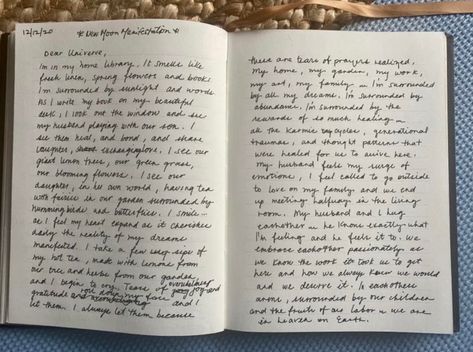 12/12/20 * New Moon Manifestation *
Dear Universe,
I'm in my home library. It smells like
fresh linen, spring flowers and books.
I'm surrounded by sunlight and words
As I write my book on my beautiful
desk, I look out the window and see
my husband playing with our son. I
see them heal, and bond, and share
laughter, exchanging love. I see our
giant lemon trees, our green grass,
our blooming flowers. I see our
daughter, in her own world, having tea
with fairies in our garden surrounded by
hummingbirds and butterflies. I smile...
as I feel my heart expand as it cherishes
daily the reality of my dreams
manifested. I take a few sips of
my hot tea, made with lemons from
our tree and herbs from our garden,
and I begin to cry. Tears of overwhelming joy and
gratitude run down my face and I
let them. I always let them because
these are tears of prayers realized.
My home, my garden, my work,
my art, my family — I'm surrounded
by all my dreams. I'm surrounded by
abundance. I'm surrounded by the
rewards of so much healing —
all the karmic cycles, generational
traumas, and thought patterns that
were healed for us to arrive here.
My husband feels my surge of
emotions, I feel called to go outside
to love on my family and we end
up meeting halfway in the living
room. My husband and I hug
eachother — he knows exactly what
I'm feeling and he feels it to. We
embrace eachother passionately as
we know the work it took us to get
here and how we always knew we would
and we deserve it. In eachothers
arms, surrounded by our children
and the fruits of our labor — we are
in heaven on Earth.